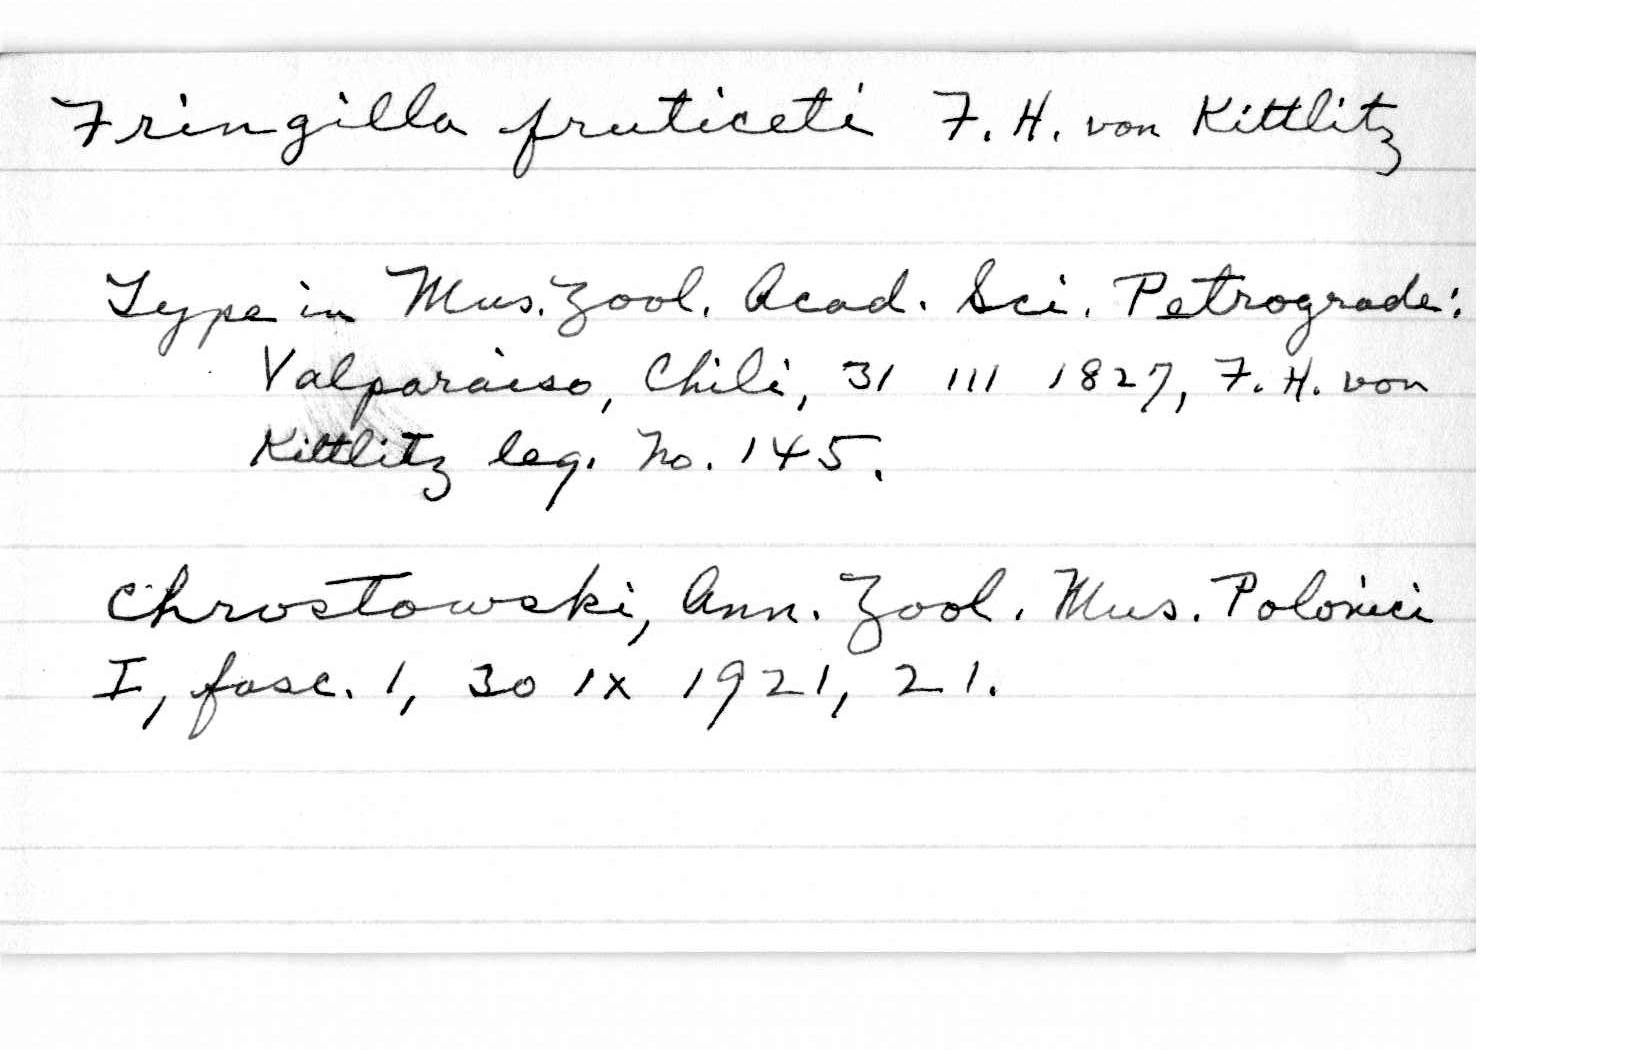 Fringilla fruticeti F. H. von Kittlitz
Type in Mus. Zool. Acad. Sci. Petrograde:
Valparaiso, Chili, 31 III 1827, F. H. von
Kittlitz leg. No. 145.
Chrostowski, Ann. Zool. Mus. Polonici
I, fasc. 1, 30 IX 1921, 21.